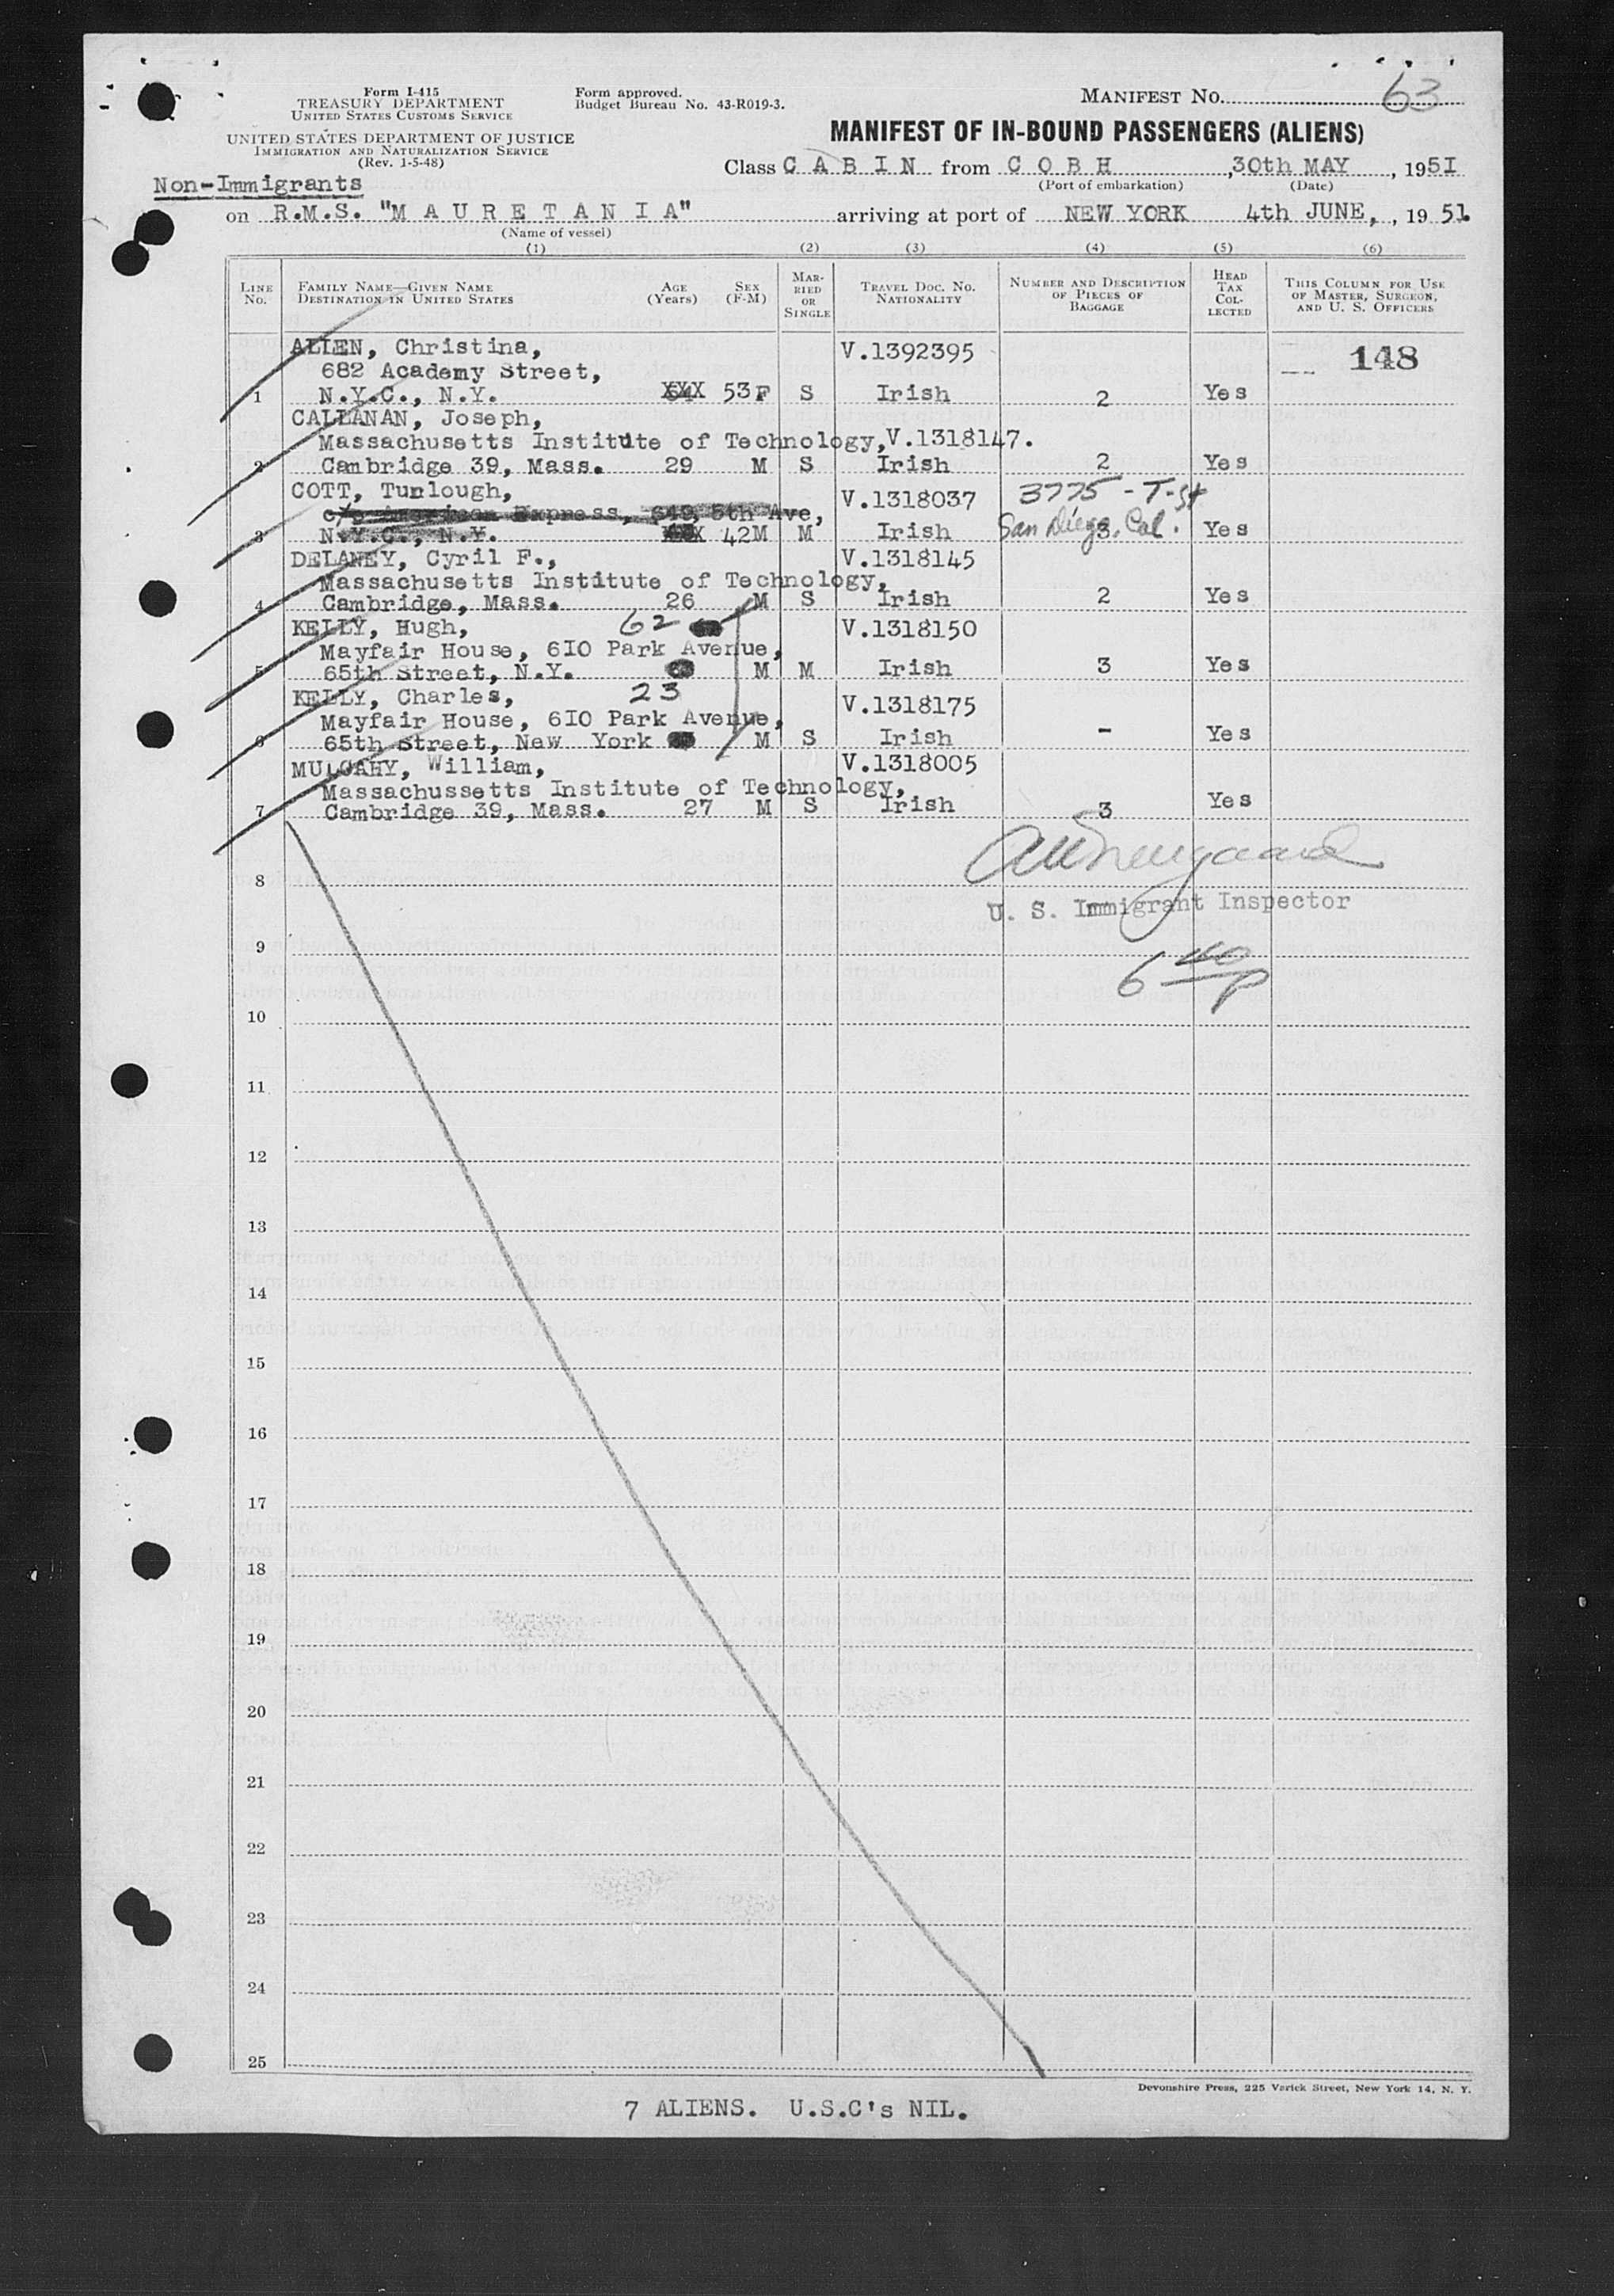 Form I-415
TREASURY DEPARTMENT
UNITED STATES CUSTOMS SERVICE
UNITED STATES DEPARTMENT OF JUSTICE
IMMIGRATION AND NATURALIZATION SERVICE
(Rev. 1-5-48)
Form approved.
Budget Bureau No. 43-R019-3.
MANIFEST No. 63
MANIFEST OF IN-BOUND PASSENGERS (ALIENS)
Class C A B I N from C O B H , 30th MAY , 1951
(Port of embarkation) (Date)
Non-Immigrants
on R.M.S. "M A U R E T A N I A" arriving at port of NEW YORK 4th JUNE, , 1951.
(Name of vessel)
(1) (2) (3) (4) (5) (6)
LINE No. FAMILY NAME—GIVEN NAME DESTINATION IN UNITED STATES AGE (Years) SEX (F-M) MARRIED OR SINGLE TRAVEL DOC. NO. NATIONALITY NUMBER AND DESCRIPTION OF PIECES OF BAGGAGE HEAD TAX COLLECTED THIS COLUMN FOR USE OF MASTER, SURGEON, AND U. S. OFFICERS
ALIEN, Christina, V.1392395 148
682 Academy Street,
1 N.Y.C., N.Y. XXX 53 F S Irish 2 Yes
CALLANAN, Joseph,
Massachusetts Institute of Technology, V.1318147.
2 Cambridge 39, Mass. 29 M S Irish 2 Yes
COTT, Turlough, V.1318037 3775 - T-St
c/o American Express, 649, 5th Ave, San Diego, Cal.
3 N.Y.C., N.Y. 42 M M Irish 3 Yes
DELANEY, Cyril F., V.1318145
Massachusetts Institute of Technology,
4 Cambridge, Mass. 26 M S Irish 2 Yes
KELLY, Hugh, 62 V.1318150
Mayfair House, 610 Park Avenue,
5 65th Street, N.Y. M M Irish 3 Yes
KELLY, Charles, 23 V.1318175
Mayfair House, 610 Park Avenue,
6 65th Street, New York M S Irish - Yes
MULCAHY, William, V.1318005
Massachussetts Institute of Technology,
7 Cambridge 39, Mass. 27 M S Irish 3 Yes
8
U. S. Immigrant Inspector
9
6 40 P
10
11
12
13
14
15
16
17
18
19
20
21
22
23
24
25
Devonshire Press, 225 Varick Street, New York 14, N. Y.
7 ALIENS. U.S.C's NIL.